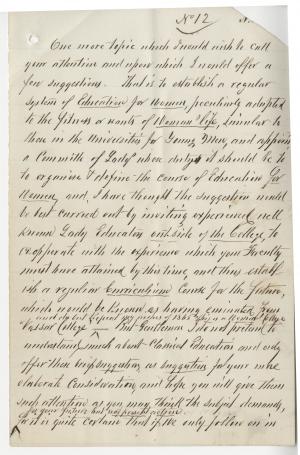 No 12
One more topic which I would wish to call
your attention and upon which I would offer a
few suggestions. That is to establish a regular
system of Education for Women, peculiarly adapted
to the fitness & wants of Woman's life, similar to
those in the Universities for Young Men, and appoint
a Committe of Ladys whose duty it should be to
to organise & define the course of Education for
Women, and, I have thought the suggestion would
be best carried out by inviting experienced well
known Lady Educators outside of the College, to
co-opperate with the experience which your Faculty
must have attained by this time, and thus establ
ish a regular Curriculum Course for the future,
which would be known as having emanated from
Vassar College — But Gentlemen I do not pretend to
understand much about Classical Education and only
offer these suggestions as suggestions for your more
elaborate Consideration, and hope you will give them
such attention as you may think the subject demands,
for your future but not present action.
as it is quite certain that if we only follow on in